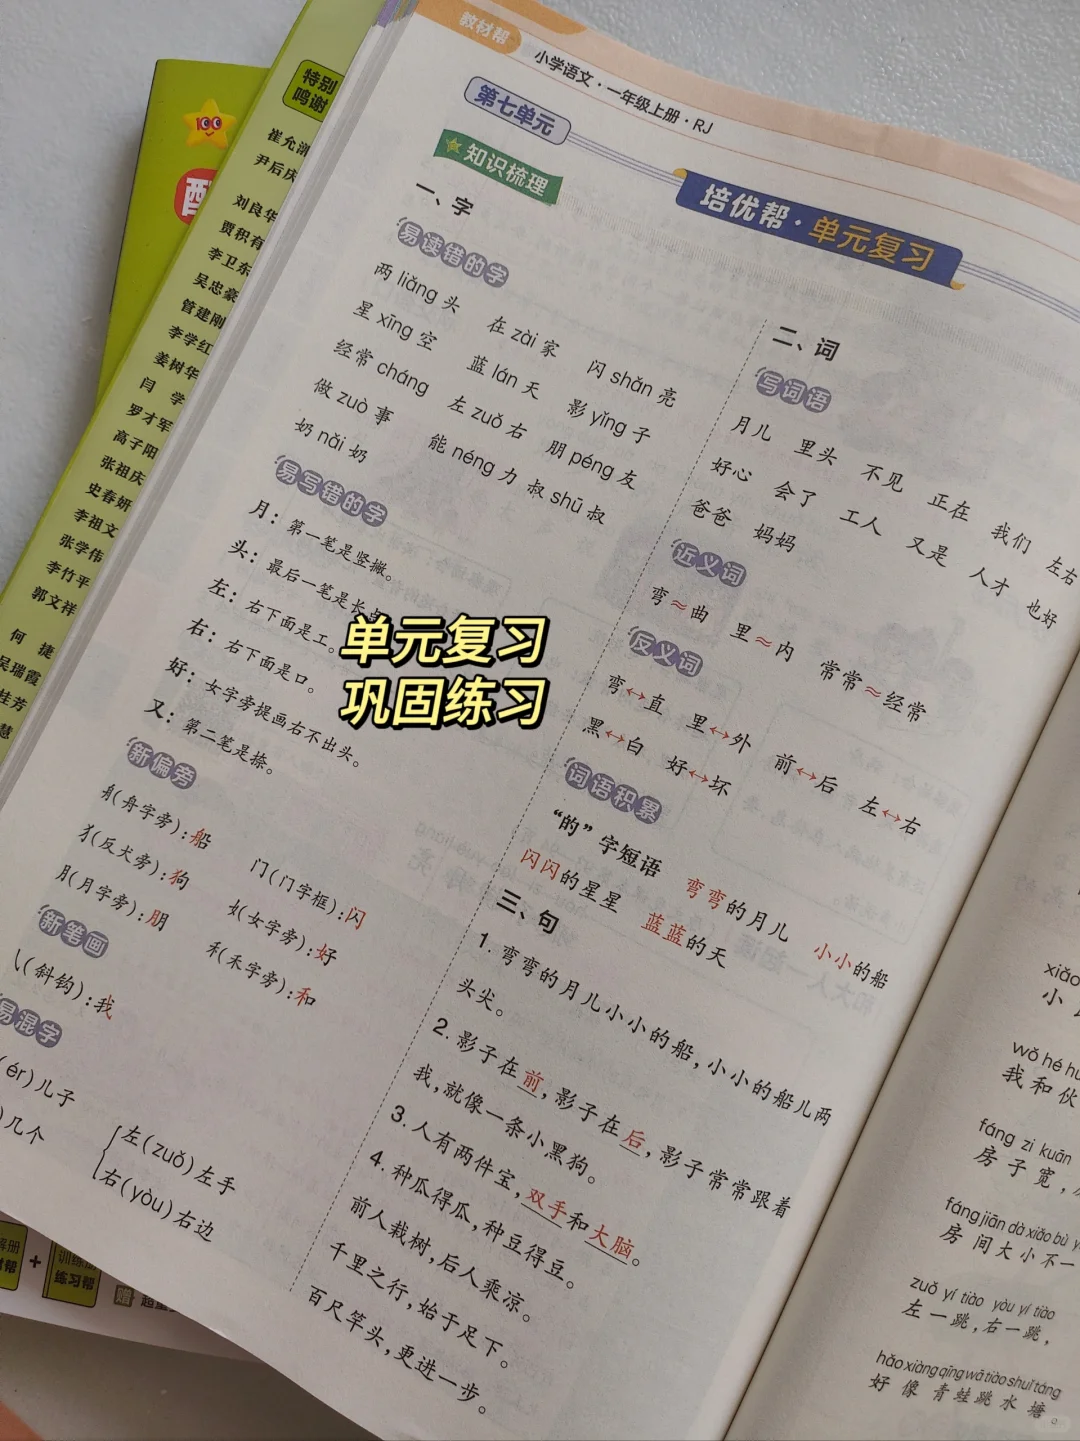 教材帮
小学语文·一年级上册·RJ
第七单元
知识梳理
培优帮·单元复习
一、字
易读错的字
两 liǎng 头 在 zài 家 闪 shǎn 亮
星 xīng 空 蓝 lán 天 影 yǐng 子
经常 cháng 左 zuǒ 右 朋 péng 友
做 zuò 事 能 néng 力 叔 shū 叔
奶 nǎi 奶
易写错的字
月：第一笔是竖撇。
头：最后一笔是长点
左：右下面是工。
右：右下面是口。
好：女字旁提画右不出头。
又：第二笔是捺。
新偏旁
舟(舟字旁):船 门(门字框):闪
犭(反犬旁):狗 女(女字旁):好
月(月字旁):朋 禾(禾字旁):和
新笔画
㇂(斜钩):我
易混字
(ér)儿子
)几个
左(zuǒ)左手
右(yòu)右边
二、词
写词语
月儿 里头 不见 正在 我们 左右
好心 会了 工人 又是 人才 也好
爸爸 妈妈
近义词
弯≈曲 里≈内 常常≈经常
反义词
弯↔直 里↔外 前↔后 左↔右
黑↔白 好↔坏
词语积累
“的”字短语
闪闪的星星 弯弯的月儿 小小的船
蓝蓝的天
三、句
1. 弯弯的月儿小小的船，小小的船儿两
头尖。
2. 影子在前，影子在后，影子常常跟着
我，就像一条小黑狗。
3. 人有两件宝，双手和大脑。
4. 种瓜得瓜，种豆得豆。
前人栽树，后人乘凉。
千里之行，始于足下。
百尺竿头，更进一步。
单元复习
巩固练习
xiǎo
小
wǒ hé hu
我和伙
fáng zi kuān
房子宽，
fáng jiān dà xiǎo bù y
房间大小不一
zuǒ yí tiào yòu yí tiào
左一跳，右一跳，
hǎo xiàng qīng wā tiào shuǐ táng
好像青蛙跳水塘
特别
鸣谢
崔允
尹后庆
刘良华
贾积有
李卫东
吴忠豪
管建刚
李学红
姜树华
闫学
罗才军
高子阳
张祖庆
史春妍
李祖文
张学伟
李竹平
郭文祥
何捷
吴瑞霞
桂芳
慧
100
配
+
练习帮
赠